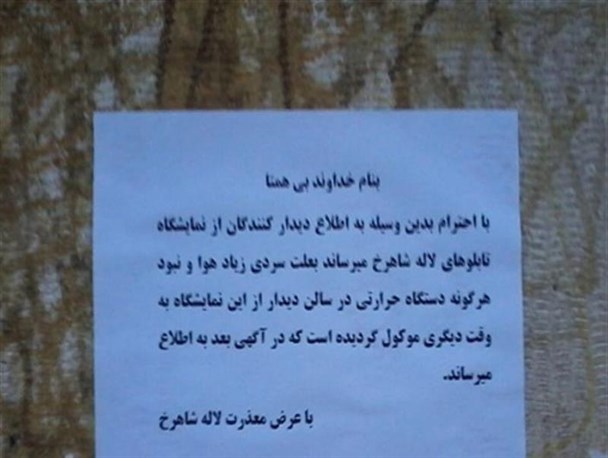 بنام خداوند بی همتا
با احترام بدین وسیله به اطلاع دیدار کنندگان از نمایشگاه
تابلوهای لاله شاهرخ میرساند بعلت سردی زیاد هوا و نبود
هرگونه دستگاه حرارتی در سالن دیدار از این نمایشگاه به
وقت دیگری موکول گردیده است که در آگهی بعد به اطلاع
میرساند.
با عرض معذرت لاله شاهرخ